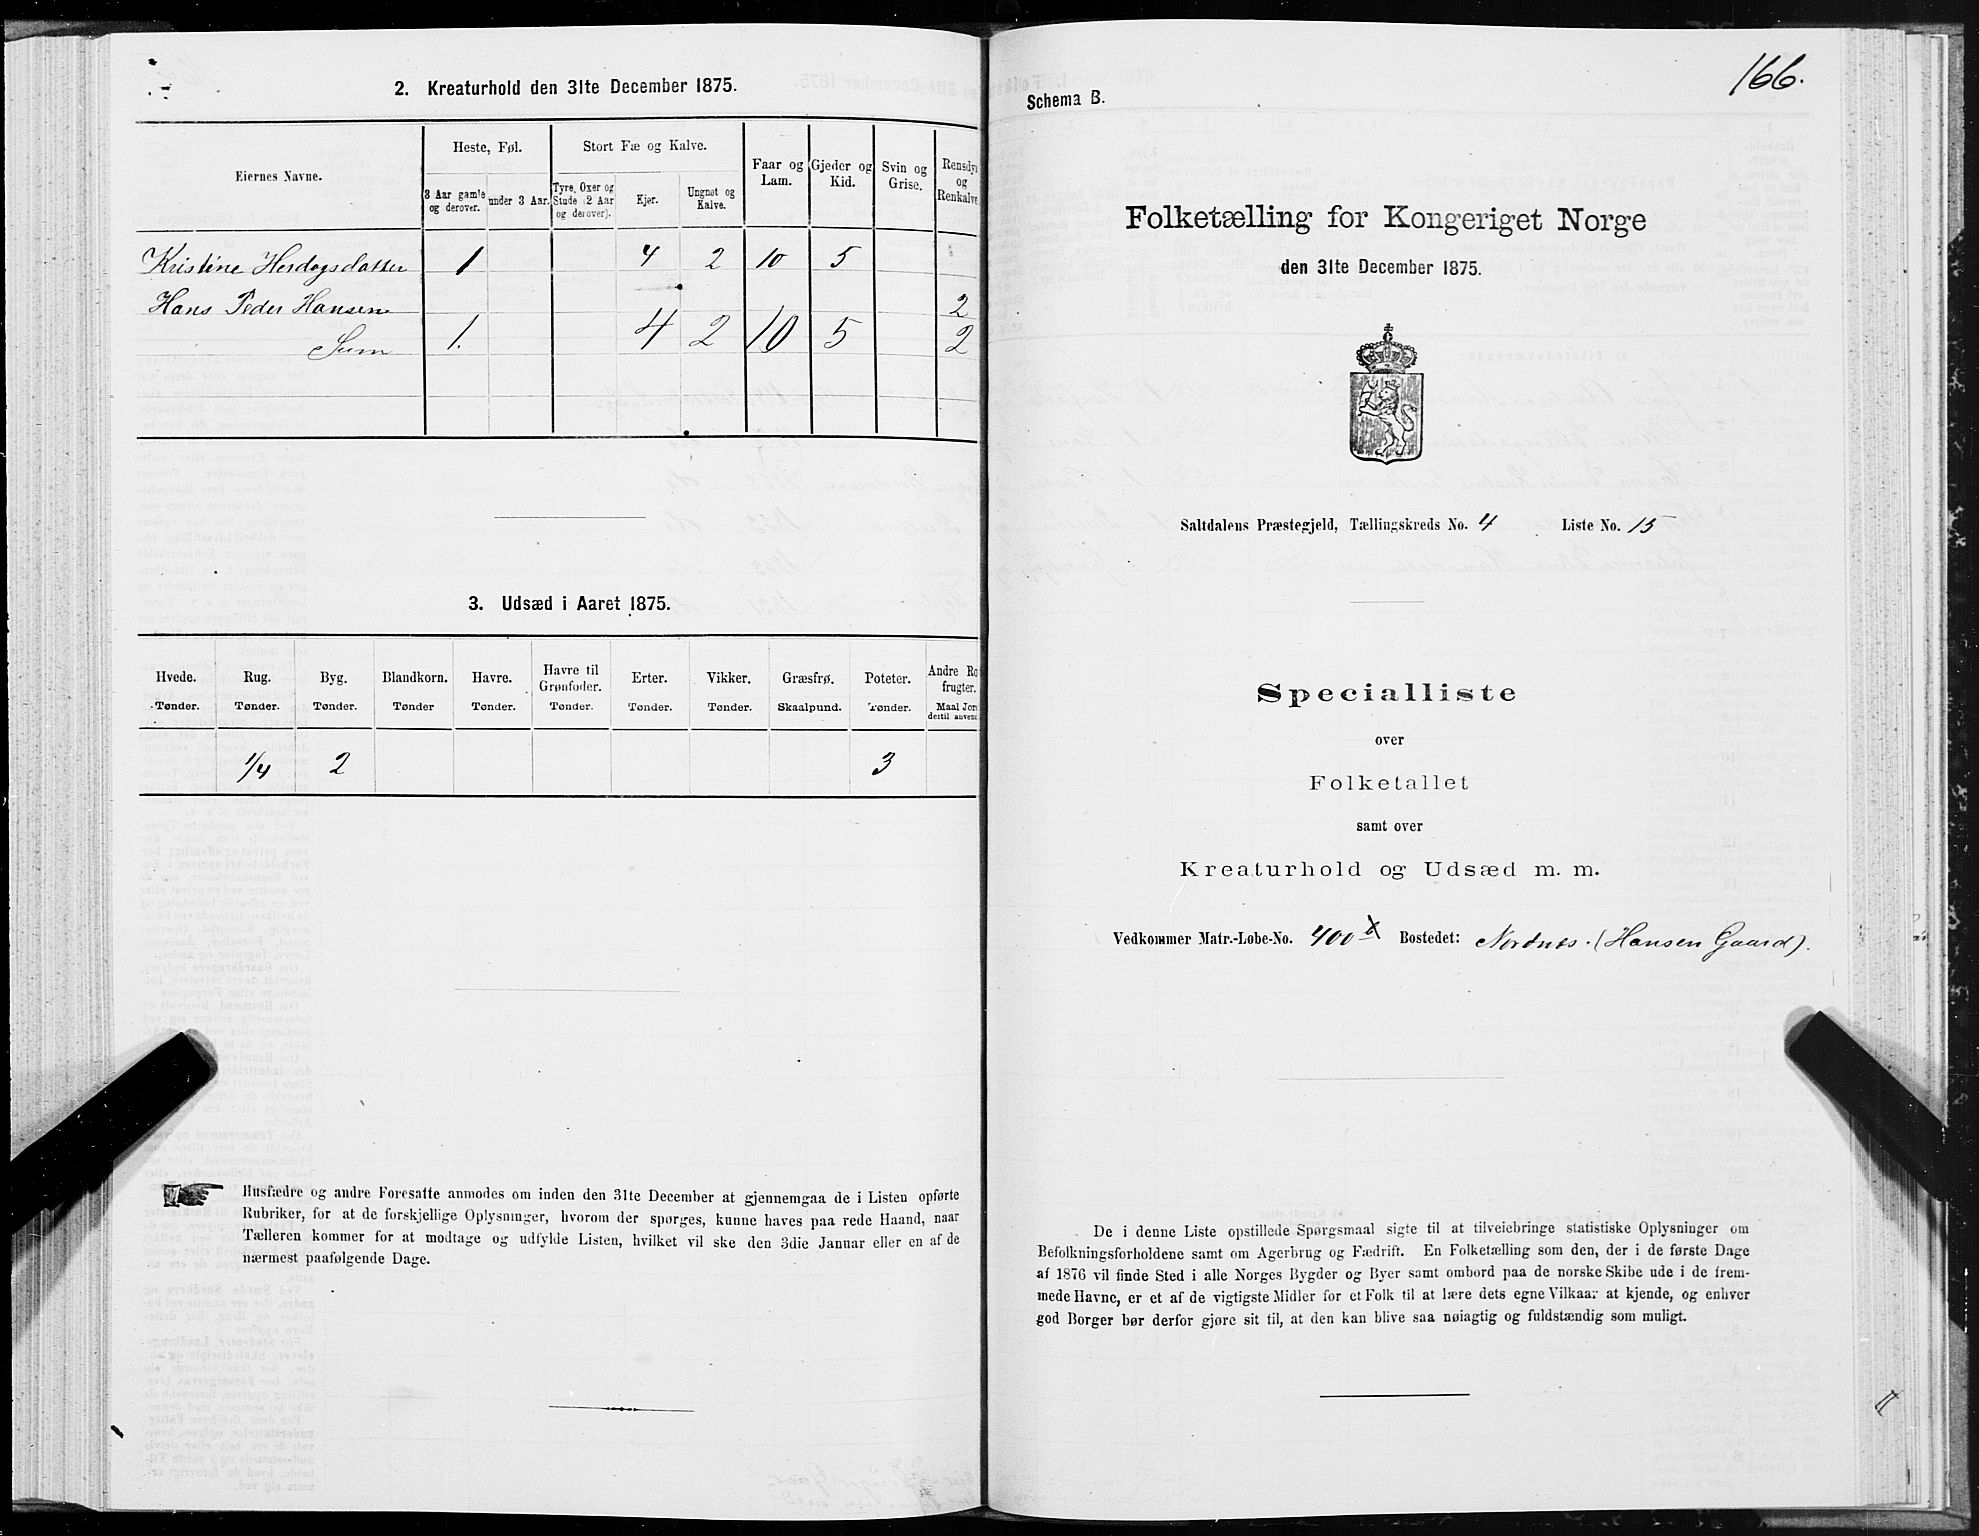 2. Kreaturhold den 31te December 1875.
Eiernes Navne.
Heste, Føl.
Stort Fæ og Kalve.
Faar og Lam.
Gjeder og Kid.
Svin og Grise.
Rensdyr og Renkalve
3 Aar gamle og derover.
under 3 Aar.
Tyre, Oxer og Stude (2 Aar og derover).
Kjer.
Ungnøt og Kalve.
Kristine Herdagsdatter 1 4 2 10 5
Hans Peder Hansen 2
Sum 1. 4 2 10 5 2
3. Udsæd i Aaret 1875.
Hvede. Rug. Byg. Blandkorn. Havre. Havre til Grønfoder. Erter. Vikker. Græsfrø. Poteter. Andre Ro frugter.
Tønder. Tønder. Tønder. Tønder Tønder. Tønder. Tønder. Tønder. Skaalpund. Tønder. Maal Jor dertil anvend
1/4 2 3
Husfædre og andre Foresatte anmodes om inden den 31te December at gjennemgaa de i Listen opførte
Rubriker, for at de forskjellige Oplysninger, hvorom der spørges, kunne haves paa rede Haand, naar
Tælleren kommer for at modtage og udfylde Listen, hvilket vil ske den 3die Januar eller en af de
nærmest paafølgende Dage.
166.
Schema B.
Folketælling for Kongeriget Norge
den 31te December 1875.
Saltdalens Præstegjeld, Tællingskreds No. 4 Liste No. 15
Specialliste
over
Folketallet
samt over
Kreaturhold og Udsæd m. m.
Vedkommer Matr.-Løbe-No. 400 Bostedet: Nordnes. (Hansen Gaard).
De i denne Liste opstillede Spørgsmaal sigte til at tilveiebringe statistiske Oplysninger om
Befolkningsforholdene samt om Agerbrug og Fædrift. En Folketælling som den, der i de første Dage
af 1876 vil finde Sted i alle Norges Bygder og Byer samt ombord paa de norske Skibe ude i de frem-
mede Havne, er et af de vigtigste Midler for et Folk til at lære dets egne Vilkaar at kjende, og enhver
god Borger bør derfor gjøre sit til, at den kan blive saa nøiagtig og fuldstændig som muligt.